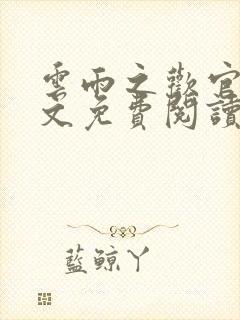 雲雨之歡官
文免費閱讀
藍鯨丫